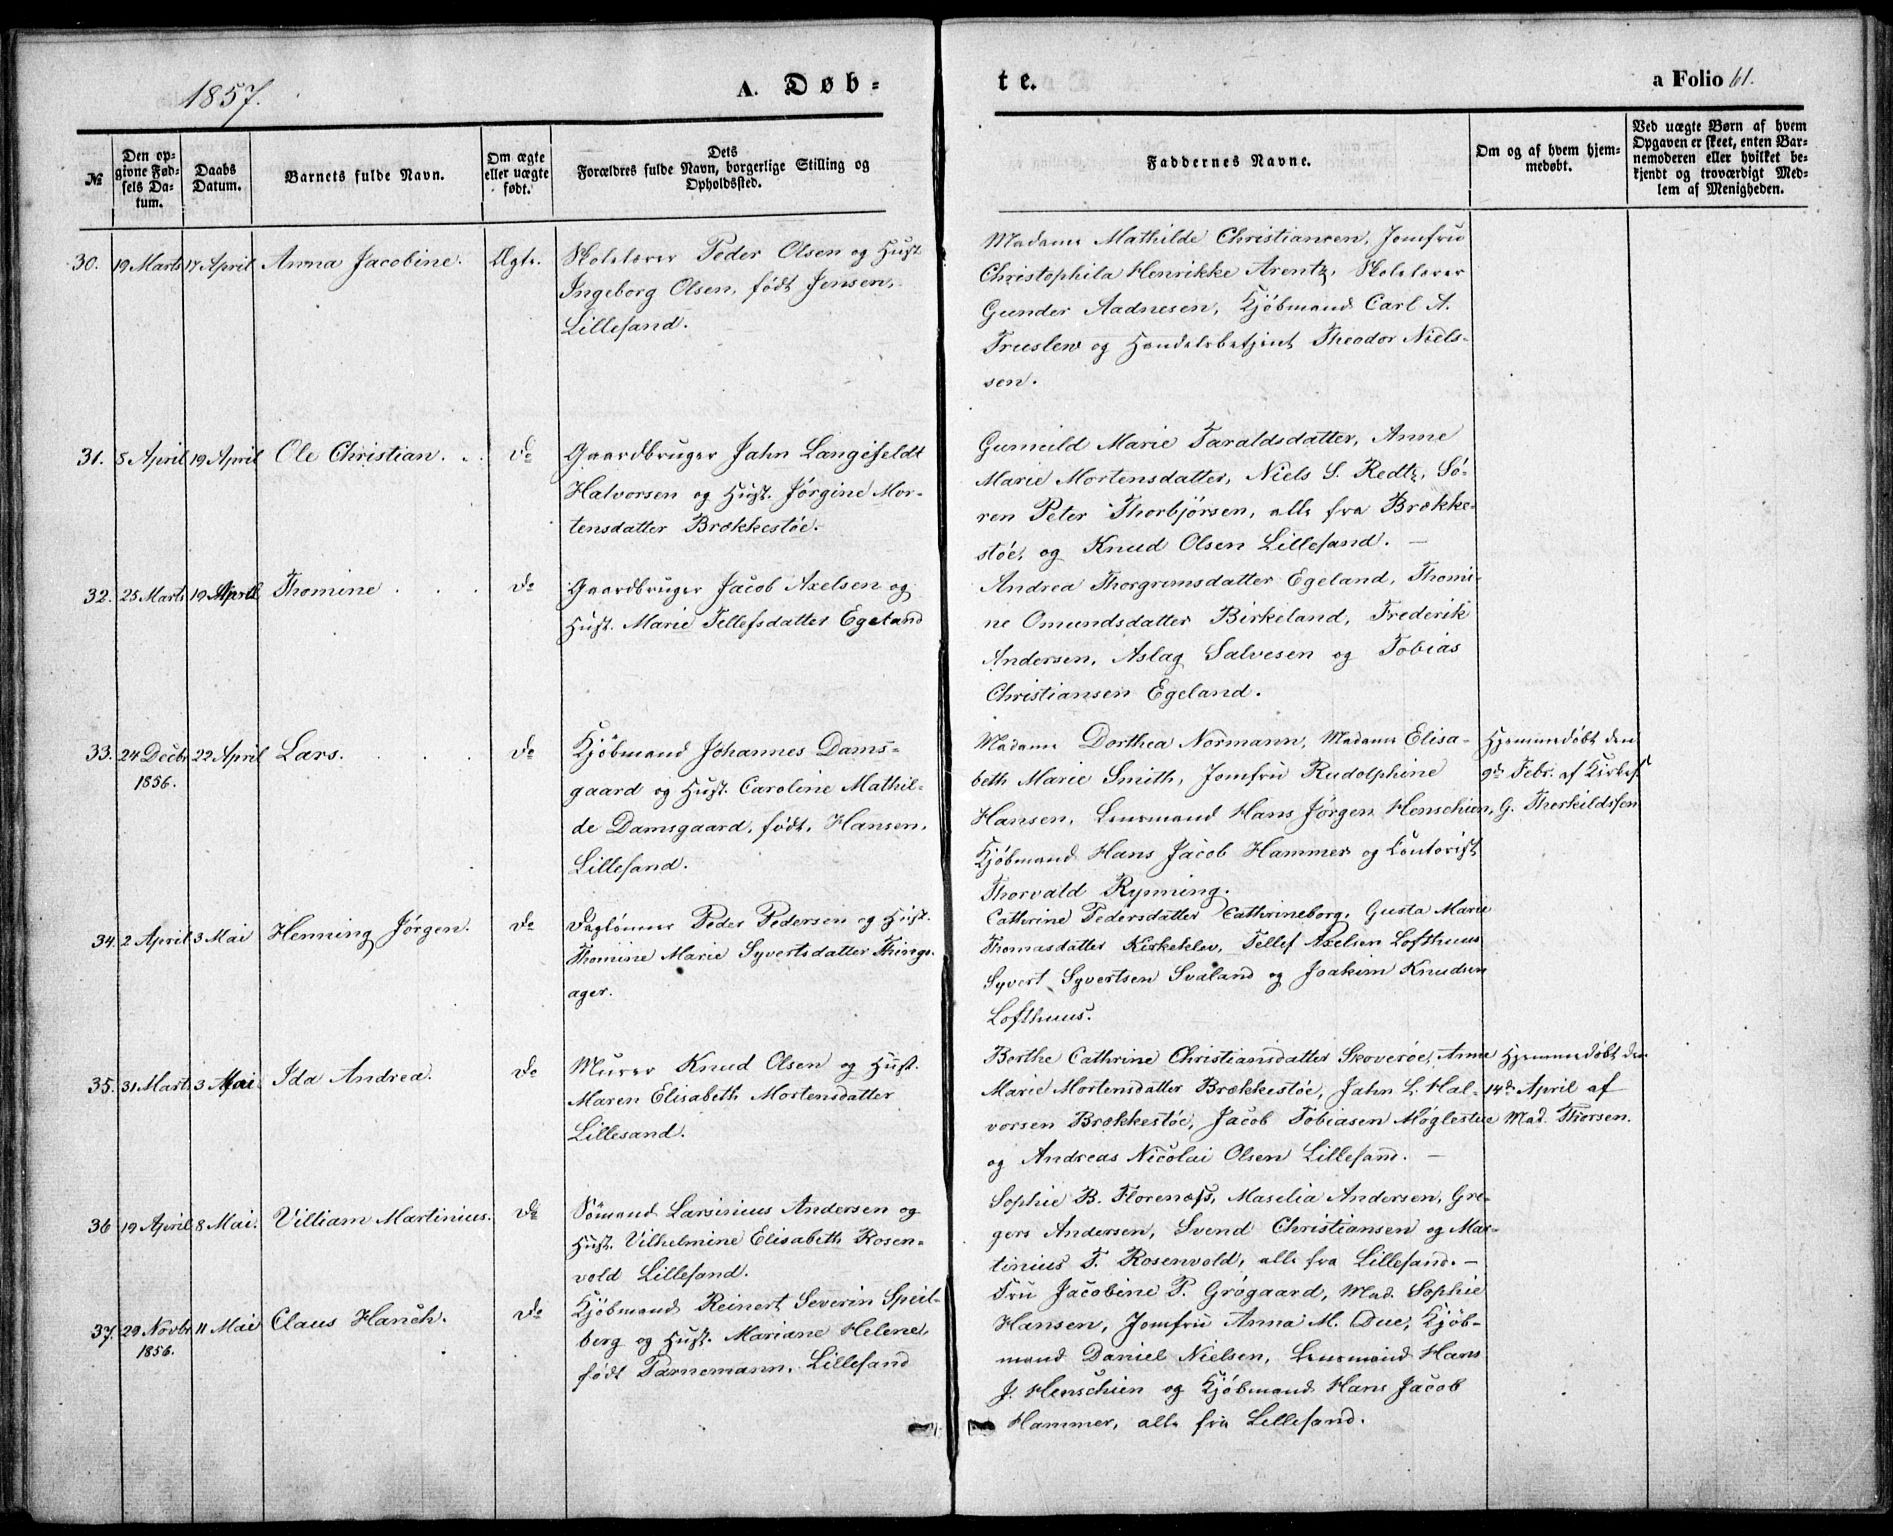 1857.
A. Døb-
te.
a Folio 61.
№
Den op-
givne Fød-
sels Da-
tum.
Daabs
Datum.
Barnets fulde Navn.
Om ægte
eller uægte
født.
Dets
Forældres fulde Navn, borgerlige Stilling og
Opholdssted.
Faddernes Navne.
Om og af hvem hjem-
medøbt.
Ved uægte Børn af hvem
Opgaven er skeet, enten Bar-
nemoderen eller hvilket be-
kjendt og troværdigt Med-
lem af Menigheden.
30. 19 Marts 17 April Anna Jacobine. Ægte.
Skolelærer Peder Olsen og Hust.
Ingeborg Olsen, født Jensen,
Lillesand.
Madame Mathilde Christiansen, Jomfru
Christophila Henrikke Arentz, Skolelærer
Gunder Aadnesen, Kjøbmand Carl A.
Truslew og Handelsbetjent Theodor Niels-
sen.
31. 8 April 19 April Ole Christian. . . Do
Gaardbruger Jahn Langefeldt
Halvorsen og Hust. Jørgine Mor-
tensdatter Brækkestøe.
Gunneild Marie Taraldsdatter, Anne
Marie Mortensdatter, Niels S. Redtz, Sö-
ren Peter Thorbjörsen, alle fra Brække-
støe, og Knud Olsen Lillesand. —
32. 25 Marts 19 April Thomine . . . Do
Gaardbruger Jacob Axelsen og
Hust. Marie Tellefsdatter Egeland
Andrea Thorgrimsdatter Egeland, Thomi-
ne Omundsdatter Birkeland, Frederik
Andersen, Aslag Salvesen og Tobias
Christiansen Egeland.
33. 24 Decbr 22 April Lars. . . . Do
1856.
Kjöbmand Johannes Dams-
gaard og Hust. Caroline Mathil-
de Damsgaard, født, Hansen,
Lillesand.
Madame Dorthea Normann, Madame Elisa-
beth Marie Smith, Jomfru Rudolphine
Hansen, Lensmand Hans Jørgen Henschien,
Kjöbmand Hans Jacob Hammer og Contorist
Thorvald Rynning.
Hjemmedøbt den
9de Febr. af Kirkes.
G. Thorkildssen
34. 2 April 3 Mai Henning Jörgen. Do
Daglönner Peder Pedersen og Hust.
Thomine Marie Syvertsdatter Things-
ager.
Cathrine Pedersdatter Cathrineborg, Gusta Marie
Thomasdatter Kirkeklev, Tellef Axelsen Lofthuus
Syvert Syvertsen Svaland og Joakim Knudsen
Lofthuus.
35. 31 Marts 3 Mai Ida Andrea. Do
Murer Knud Olsen og Hust.
Maren Elisabeth Mortensdatter
Lillesand.
Berthe Cathrine Christiansdatter Skoverøe, Anne
Marie Mortensdatter Brækkestøe, Jahn L. Hal-
vorsen Brækkestøe, Jacob Tobiasen Møglestue
og Andreas Nicolai Olsen Lillesand. —
Hjemmedøbt den
14de April af
Mad. Thorsen.
36 19 April 8 Mai. Villiam Martinius. Do
Sömand Larsinius Andersen og
Hust. Vilhelmine Elisabeth Rosen-
vold Lillesand.
Sophie B. Florenæss, Maselia Andersen, Gre-
gers Andersen, Svend Christiansen og Mar-
tinius T. Rosenvold, alle fra Lillesand. —
37. 29 Novbr 11 Mai Claus Hanch. Do
1856.
Kjöbmand Reinert Severin Speil-
berg og Hust. Mariane Helene,
født Parnemann, Lillesand
Fru Jacobine P. Grøgaard, Mad. Sophie
Hansen, Jomfru Anna M. Due, Kjöb-
mand Daniel Nielsen, Lensmand Hans
J. Henschien og Kjöbmand Hans Jacob
Hammer, alle fra Lillesand.